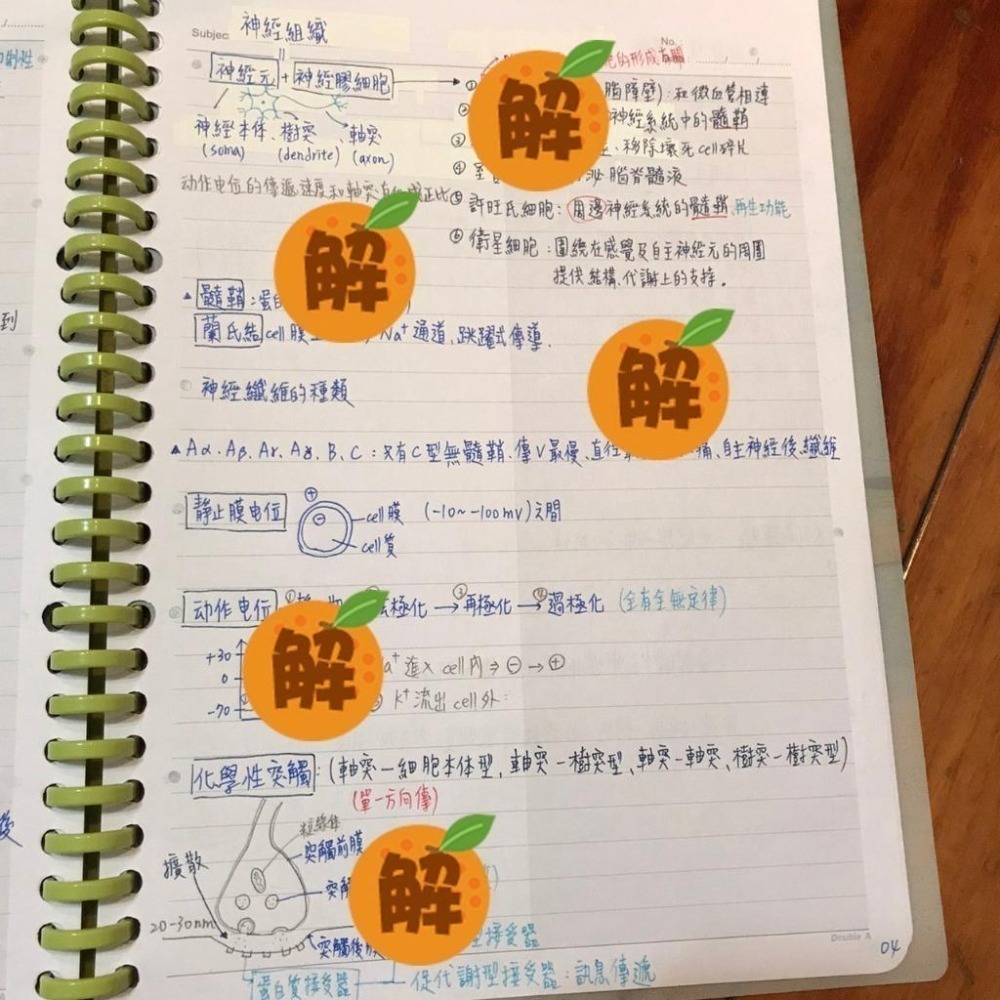 Subjec 神經組織
No.
神經元 + 神經膠細胞 →
神經本体、樹突、軸突
(soma) (dendrite) (axon)
动作电位的傳遞速度和軸突
成正比
的形成有關
① 腦障壁): 和微血管相連
神經系統中的髓鞘
③ 、移除壞死cell碎片
④ 泌腦脊髓液
⑤ 許旺氏細胞: 周邊神經系統的髓鞘,再生功能
⑥ 衛星細胞: 圍繞在感覺及自主神經元的周圍
提供結構、代謝上的支持。
▲ 髓鞘: 蛋白
蘭氏結 cell膜 Na⁺通道,跳躍式傳導.
神經纖維的種類
▲ Aα、Aβ、Aγ、Aδ、B、C: 只有C型無髓鞘.傳V最慢、直徑 痛、自主神經後纖維
靜止膜电位 ⊕ ⊖ cell膜 (-10~-100mV)之間
cell質
动作电位 ① 極化 →③再極化 →④過極化 (全有全無定律)
+30
0
-70
a⁺進入cell內⇒⊖→⊕
K⁺流出cell外:
化學性突觸: (軸突-細胞本体型、軸突-樹突型、軸突-軸突、樹突-樹突型)
(單一方向傳)
粒線体
突觸前膜
擴散
突觸
20-30nm
突觸後膜
型接受器
蛋白質接受器
促代謝型接受器: 訊息傳遞
解
解
解
解
解
Double A
04